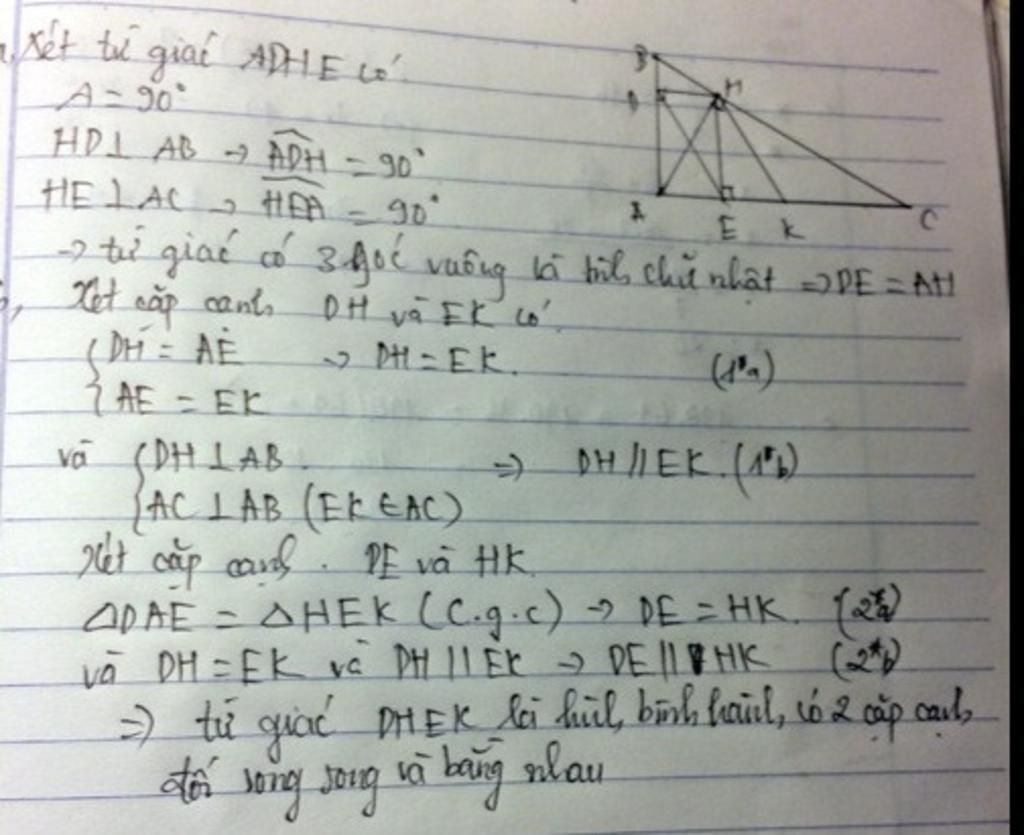 Xét tứ giác ADHE có
A = 90°
HD ⊥ AB → ADH = 90°
HE ⊥ AC → HEA = 90°
→ tứ giác có 3 góc vuông là hình chữ nhật => DE = AH
B
D
H
A
E
K
C
b, Xét cặp cạnh DH và EK có
{ DH = AE → DH = EK. (1*a)
{ AE = EK
và { DH ⊥ AB => DH // EK. (1*b)
{ AC ⊥ AB (EK ∈ AC)
Xét cặp cạnh. DE và HK
ΔDAE = ΔHEK (C.g.c) → DE = HK. (2*a)
và DH = EK và DH // EK → DE // HK (2*b)
=> tứ giác DHEK là hình bình hành, có 2 cặp cạnh
đối song song và bằng nhau